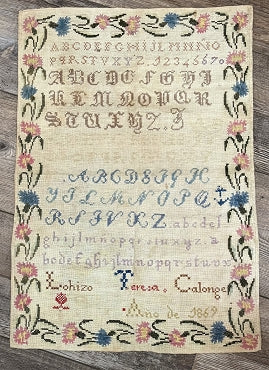 ABCDEFGHIJLMNÑO
PQRSTVXYZ.12346670
ABCDEFGHI
JKLMNOPQR
STUXYZ.
ABCDEFGH
YJLMNOPQ
RSTVXZ.abcdef
ghijlmnopqrstuxyz.a
bcdefghijlmnopqrstuvx
Lohizo Teresa Calonge
Año de 1869